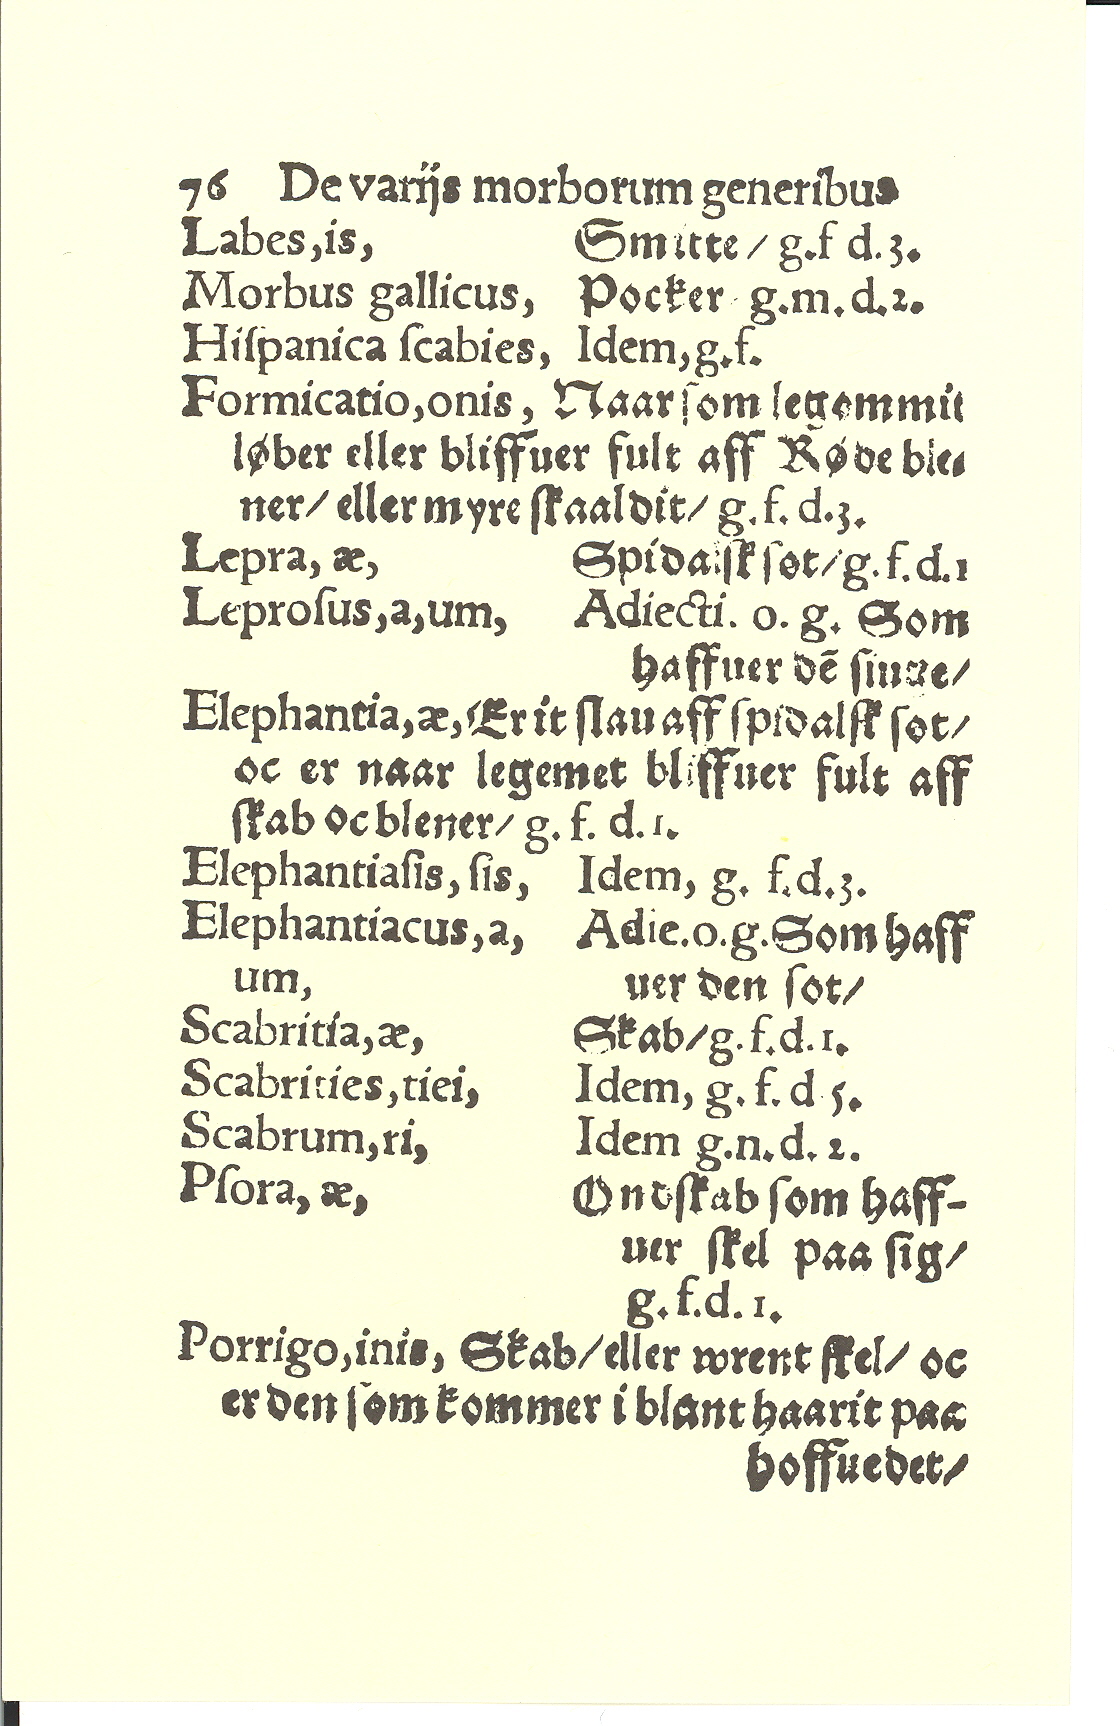 76 De varijs morborum generibus
Labes,is, Smitte / g.f d.3.
Morbus gallicus, Pocker g.m.d.2.
Hiſpanica ſcabies, Idem,g.f.
Formicatio,onis, Naar ſom legommit
løber eller bliffuer fult aff Røde ble⸗
ner/ eller myre ſkaaldit/ g.f.d.3.
Lepra, æ, Spidalſk ſot/g.f.d.1
Leproſus,a,um, Adiecti. o. g. Som
haffuer dē ſiuge/
Elephantia,æ, Er it ſlau aff ſpidalſk ſot/
oc er naar legemet bliffuer fult aff
ſkab oc blener/ g. f. d. 1.
Elephantiaſis, ſis, Idem, g. f.d.3.
Elephantiacus,a, Adie.o.g.Som haff
um, uer den ſot/
Scabritia,æ, Skab/g.f.d.1.
Scabrities,tiei, Idem, g.f.d 5.
Scabrum,ri, Idem g.n.d. 2.
Pſora, æ, Ondſkab ſom haff-
uer ſkel paa ſig/
g.f.d.1.
Porrigo,inis, Skab/eller wrent ſkel/ oc
er den ſom kommer i blant haarit paa
hoffuedet/